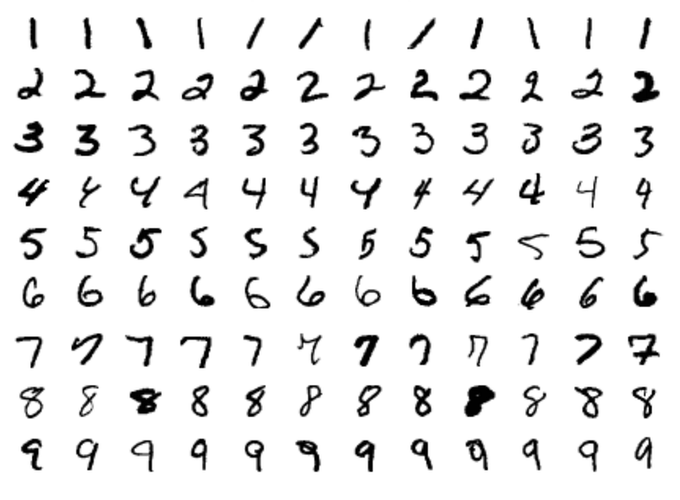 1 1 1 1 1 1 1 1 1 1 1 1
2 2 2 2 2 2 2 2 2 2 2 2
3 3 3 3 3 3 3 3 3 3 3 3
4 4 4 4 4 4 4 4 4 4 4 4
5 5 5 5 5 5 5 5 5 5 5 5
6 6 6 6 6 6 6 6 6 6 6 6
7 7 7 7 7 7 7 7 7 7 7 7
8 8 8 8 8 8 8 8 8 8 8 8
9 9 9 9 9 9 9 9 9 9 9 9